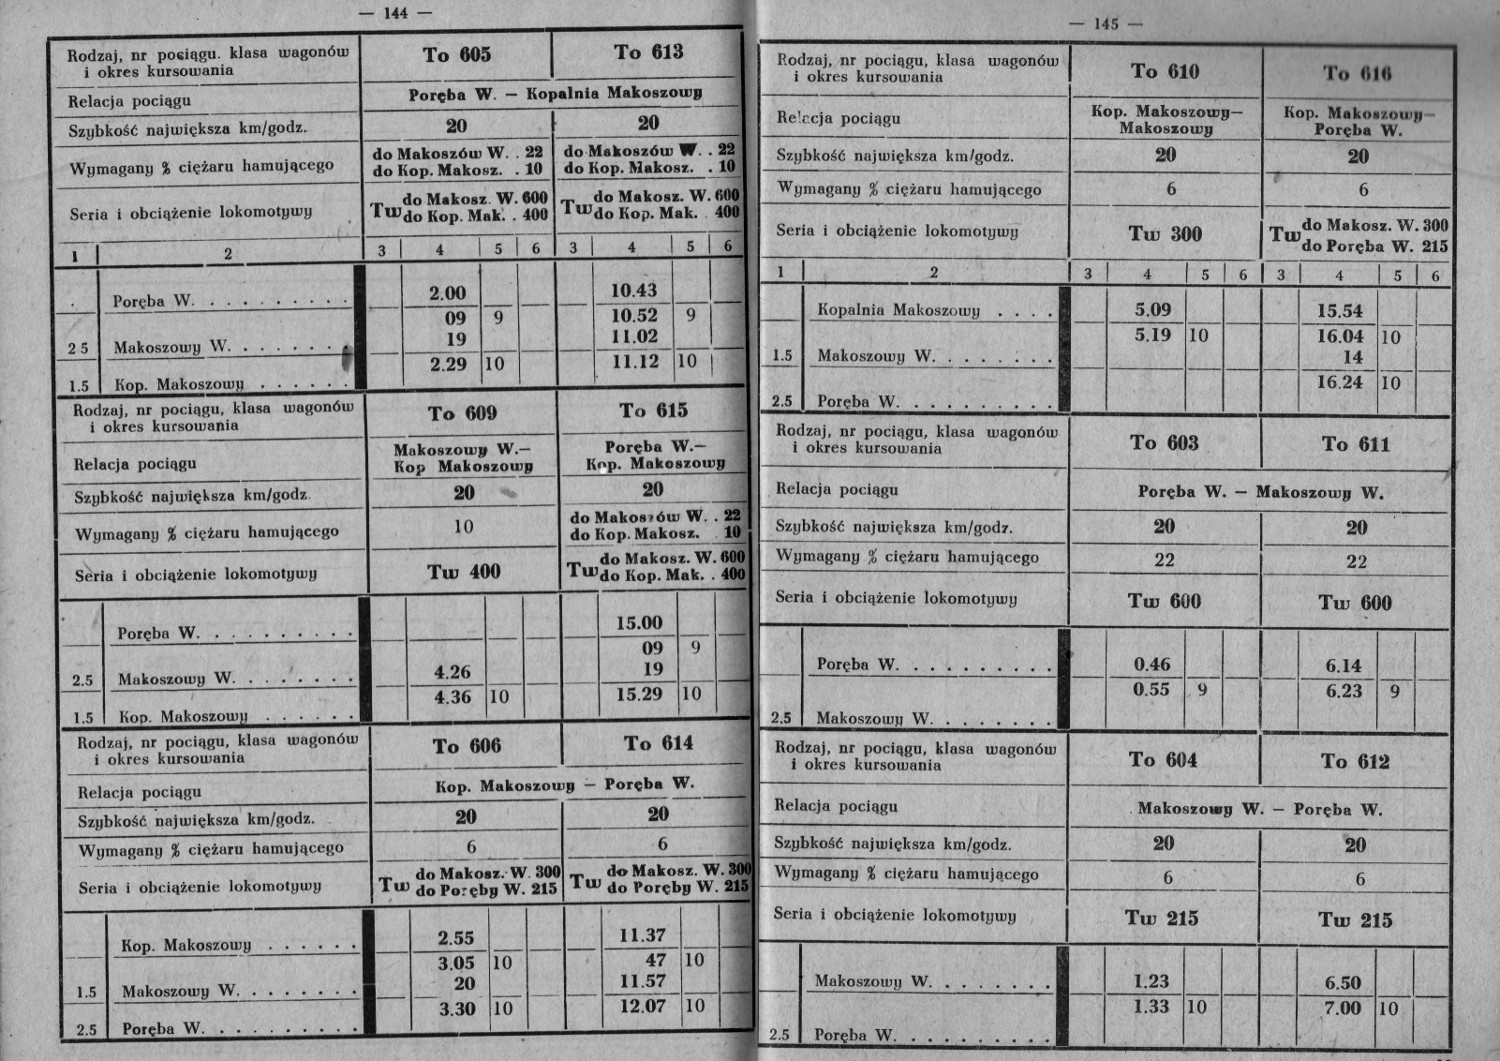 — 144 —
Rodzaj, nr pociągu. klasa wagonów
i okres kursowania
To 605 To 613
Relacja pociągu
Poręba W. — Kopalnia Makoszowy
Szybkość największa km/godz.
20 20
Wymagany % ciężaru hamującego
do Makoszów W. . 22 do Makoszów W. . 22
do Kop. Makosz. . 10 do Kop. Makosz. . 10
Seria i obciążenie lokomotywy
Tw do Makosz. W. 600 Tw do Makosz. W. 600
do Kop. Mak. . 400 do Kop. Mak. 400
1 2 3 4 5 6 3 4 5 6
Poręba W. . . . . . . . . . 2.00 10.43
09 9 10.52 9
2 5 Makoszowy W. . . . . . . 19 11.02
2.29 10 11.12 10
1.5 Kop. Makoszowy . . . . . .
Rodzaj, nr pociągu, klasa wagonów
i okres kursowania
To 609 To 615
Relacja pociągu
Makoszowy W.— Poręba W.—
Kop Makoszowy Kop. Makoszowy
Szybkość największa km/godz.
20 20
Wymagany % ciężaru hamującego
10 do Makoszów W. . 22
do Kop. Makosz. 10
Seria i obciążenie lokomotywy
Tw 400 Tw do Makosz. W. 600
do Kop. Mak. . 400
Poręba W. . . . . . . . . . 15.00
09 9
2.5 Makoszowy W. . . . . . . . 4.26 19
4.36 10 15.29 10
1.5 Kop. Makoszowy . . . . . .
Rodzaj, nr pociągu, klasa wagonów
i okres kursowania
To 606 To 614
Relacja pociągu
Kop. Makoszowy — Poręba W.
Szybkość największa km/godz.
20 20
Wymagany % ciężaru hamującego
6 6
Seria i obciążenie lokomotywy
Tw do Makosz. W 300 Tw do Makosz. W. 300
do Poręby W. 215 do Poręby W. 215
Kop. Makoszowy . . . . . . 2.55 11.37
3.05 10 47 10
1.5 Makoszowy W. . . . . . . . 20 11.57
3.30 10 12.07 10
2.5 Poręba W. . . . . . . . . .
— 145 —
Rodzaj, nr pociągu, klasa wagonów
i okres kursowania
To 610 To 616
Relacja pociągu
Kop. Makoszowy— Kop. Makoszowy—
Makoszowy Poręba W.
Szybkość największa km/godz.
20 20
Wymagany % ciężaru hamującego
6 6
Seria i obciążenie lokomotywy
Tw 300 Tw do Makosz. W. 300
do Poręba W. 215
1 2 3 4 5 6 3 4 5 6
Kopalnia Makoszowy . . . . 5.09 15.54
5.19 10 16.04 10
1.5 Makoszowy W. . . . . . . . 14
16.24 10
2.5 Poręba W. . . . . . . . . .
Rodzaj, nr pociągu, klasa wagonów
i okres kursowania
To 603 To 611
Relacja pociągu
Poręba W. — Makoszowy W.
Szybkość największa km/godz.
20 20
Wymagany % ciężaru hamującego
22 22
Seria i obciążenie lokomotywy
Tw 600 Tw 600
Poręba W. . . . . . . . . . 0.46 6.14
0.55 9 6.23 9
2.5 Makoszowy W. . . . . . . .
Rodzaj, nr pociągu, klasa wagonów
i okres kursowania
To 604 To 612
Relacja pociągu
Makoszowy W. — Poręba W.
Szybkość największa km/godz.
20 20
Wymagany % ciężaru hamującego
6 6
Seria i obciążenie lokomotywy
Tw 215 Tw 215
Makoszowy W. . . . . . . . 1.23 6.50
1.33 10 7.00 10
2.5 Poręba W. . . . . . . . . .